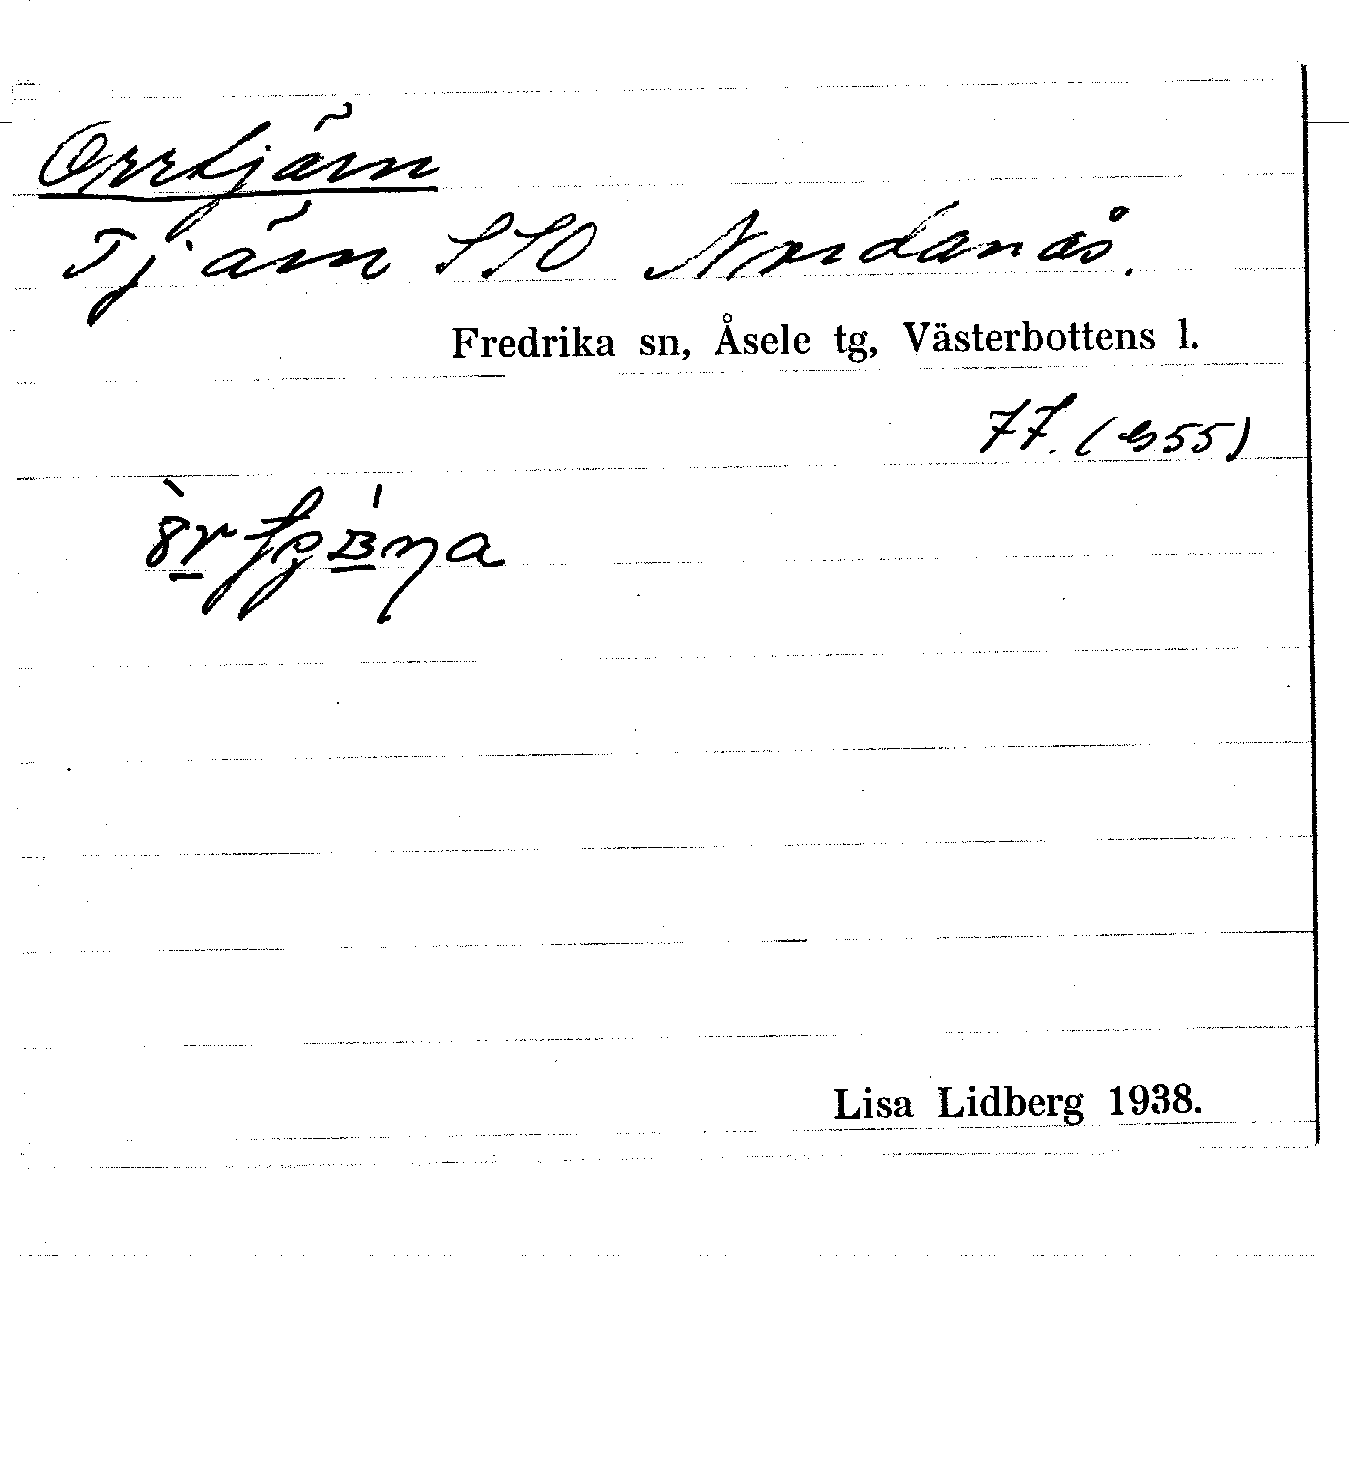 Orrtjärn
Tjärn SSO Nordanås.
Fredrika sn, Åsele tg, Västerbottens l.
77. (655)
Lisa Lidberg 1938.